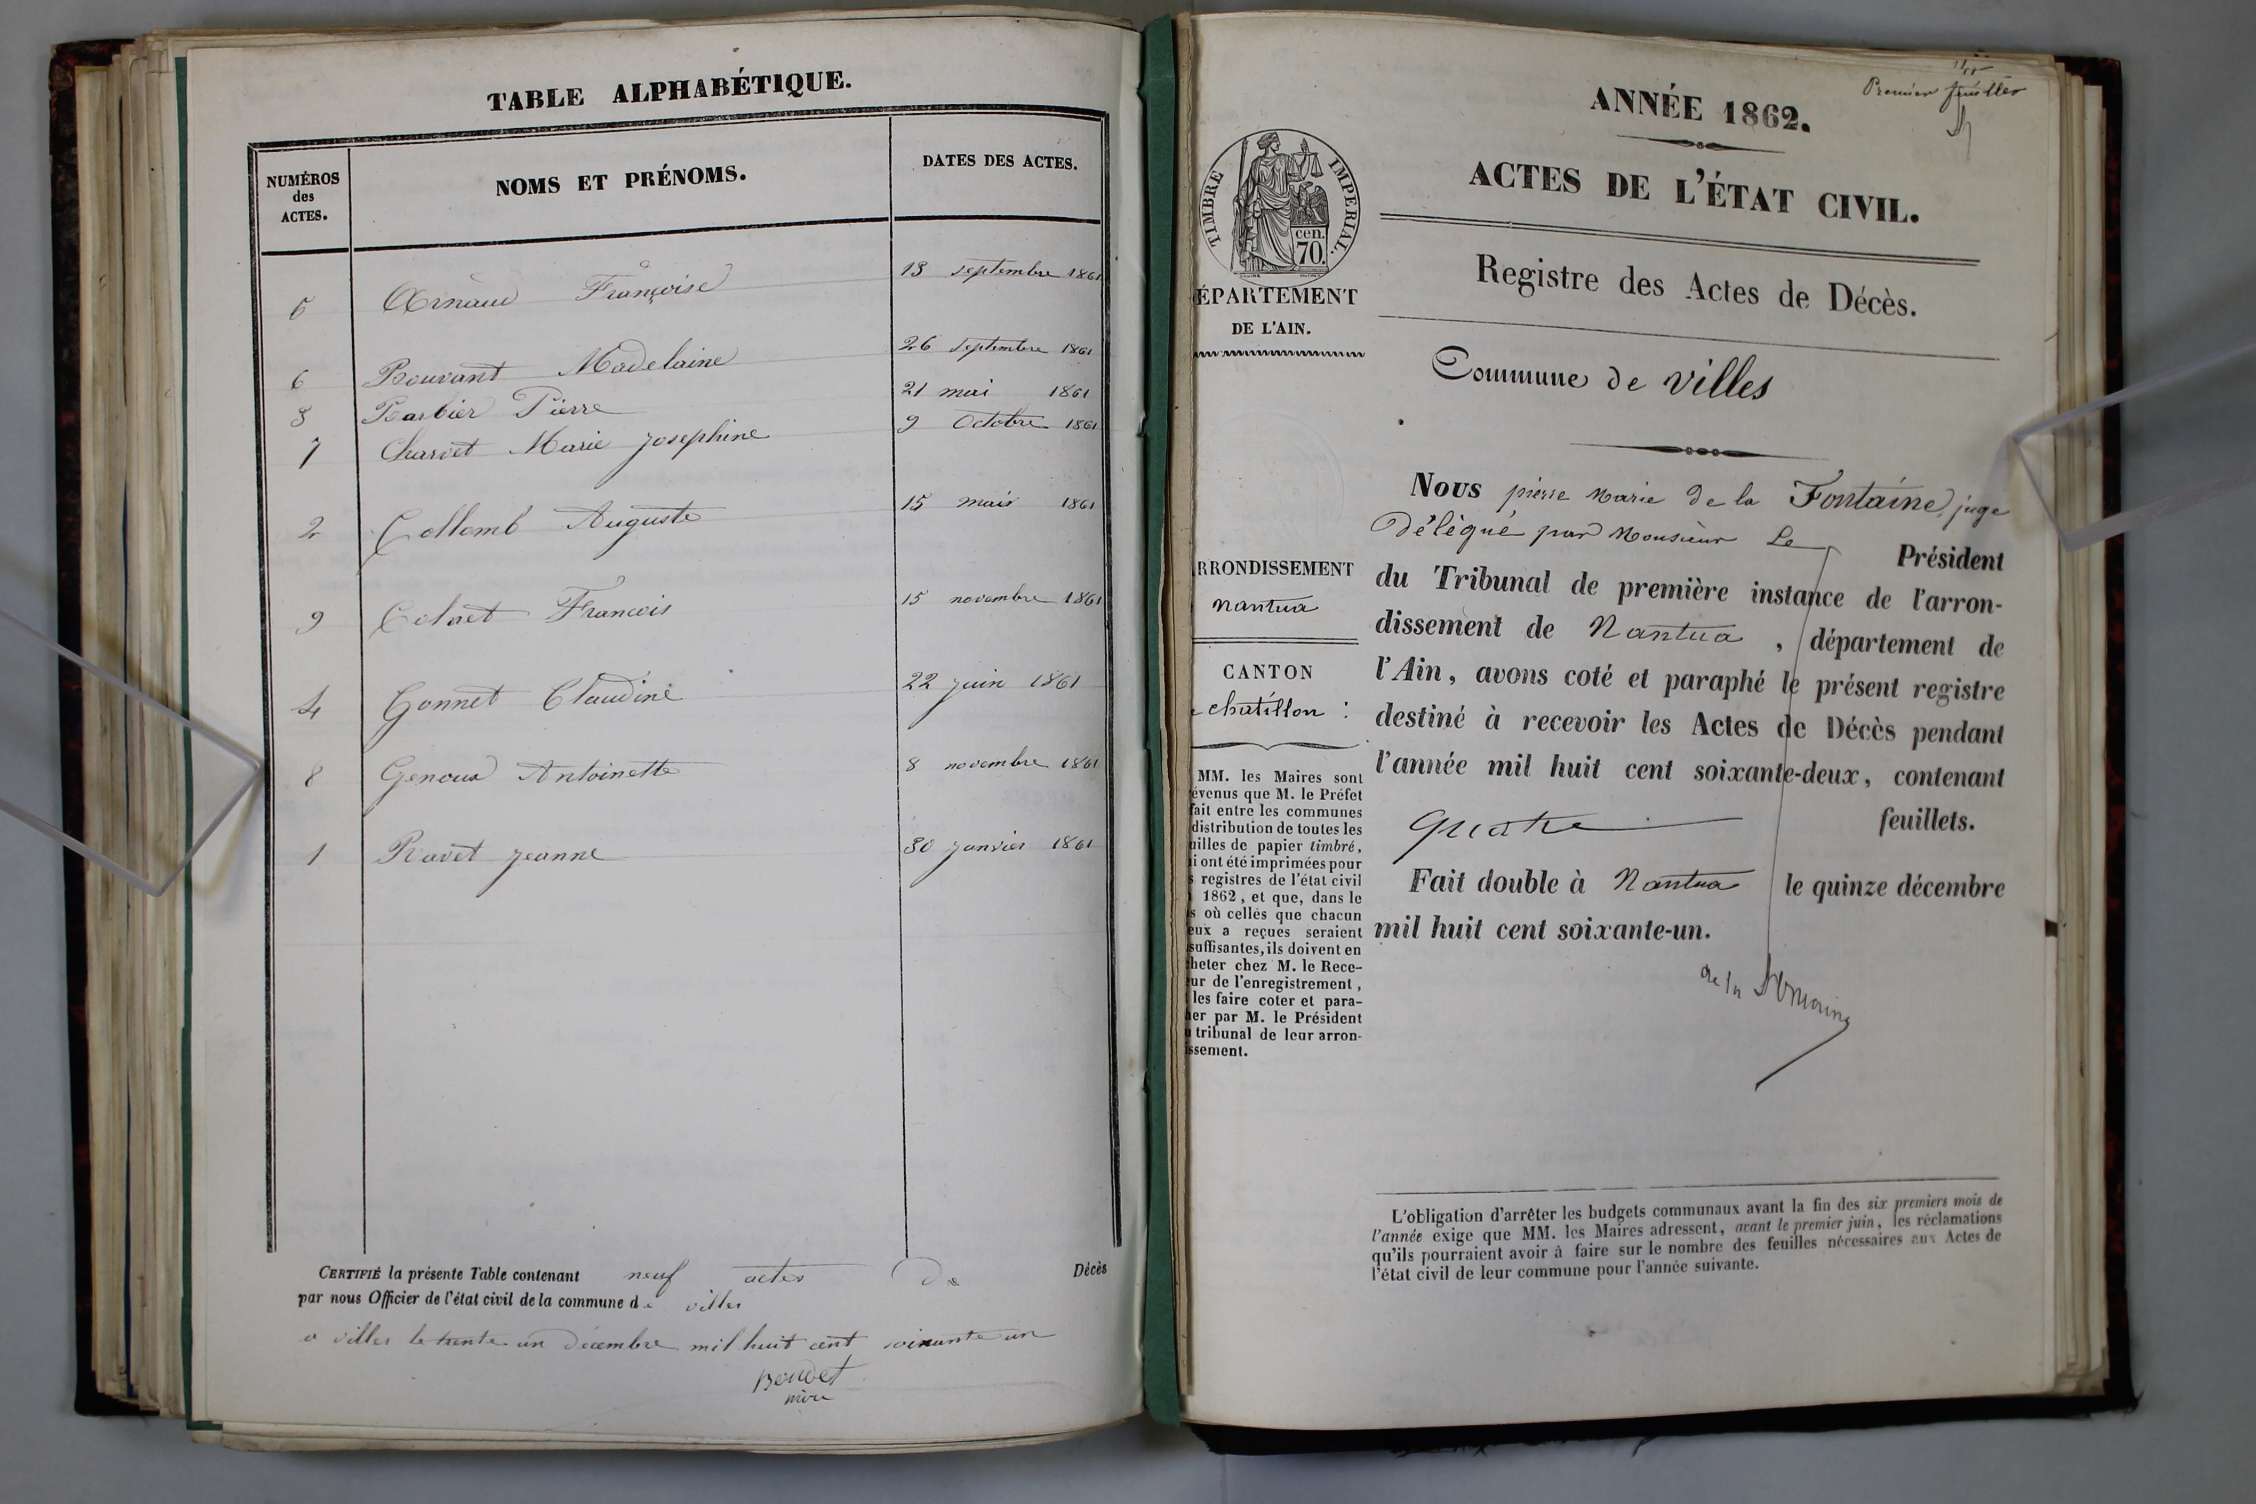 TABLE ALPHABÉTIQUE.
NUMÉROS
des
ACTES.
NOMS ET PRÉNOMS.
DATES DES ACTES.
5 Arnaud Françoise 13 septembre 1861
6 Bouvant Madelaine 26 septembre 1861
3 Barbier Pierre 21 mai 1861
7 Charvet Marie Josephine 9 Octobre 1861
2 Collomb Auguste 15 mars 1861
9 François 15 novembre 1861
4 Gonnet Claudine 22 juin 1861
8 Genoux Antoinette 8 novembre 1861
1 Ravet Jeanne 30 janvier 1861
CERTIFIÉ la présente Table contenant neuf actes de Décès
par nous Officier de l'état civil de la commune de villes
a villes le trente un décembre mil huit cent soixante un
Premier feuillet
ANNÉE 1862.
ACTES DE L'ÉTAT CIVIL.
Registre des Actes de Décès.
Commune de villes
TIMBRE IMPERIAL.
cen.
70.
ÉPARTEMENT
DE L'AIN.
RRONDISSEMENT
nantua
CANTON
chatillon :
MM. les Maires sont
évenus que M. le Préfet
fait entre les communes
distribution de toutes les
uilles de papier timbré,
i ont été imprimées pour
s registres de l'état civil
1862, et que, dans le
s où celles que chacun
eux a reçues seraient
suffisantes, ils doivent en
cheter chez M. le Rece-
ur de l'enregistrement,
les faire coter et para-
her par M. le Président
u tribunal de leur arron-
issement.
Nous pierre Marie de la Fontaine, juge
Délégué par Monsieur Le Président
du Tribunal de première instance de l'arron-
dissement de Nantua, département de
l'Ain, avons coté et paraphé le présent registre
destiné à recevoir les Actes de Décès pendant
l'année mil huit cent soixante-deux, contenant
quatre feuillets.
Fait double à Nantua le quinze décembre
mil huit cent soixante-un.
de la Fontaine
L'obligation d'arrêter les budgets communaux avant la fin des six premiers mois de
l'année exige que MM. les Maires adressent, avant le premier juin, les réclamations
qu'ils pourraient avoir à faire sur le nombre des feuilles nécessaires aux Actes de
l'état civil de leur commune pour l'année suivante.